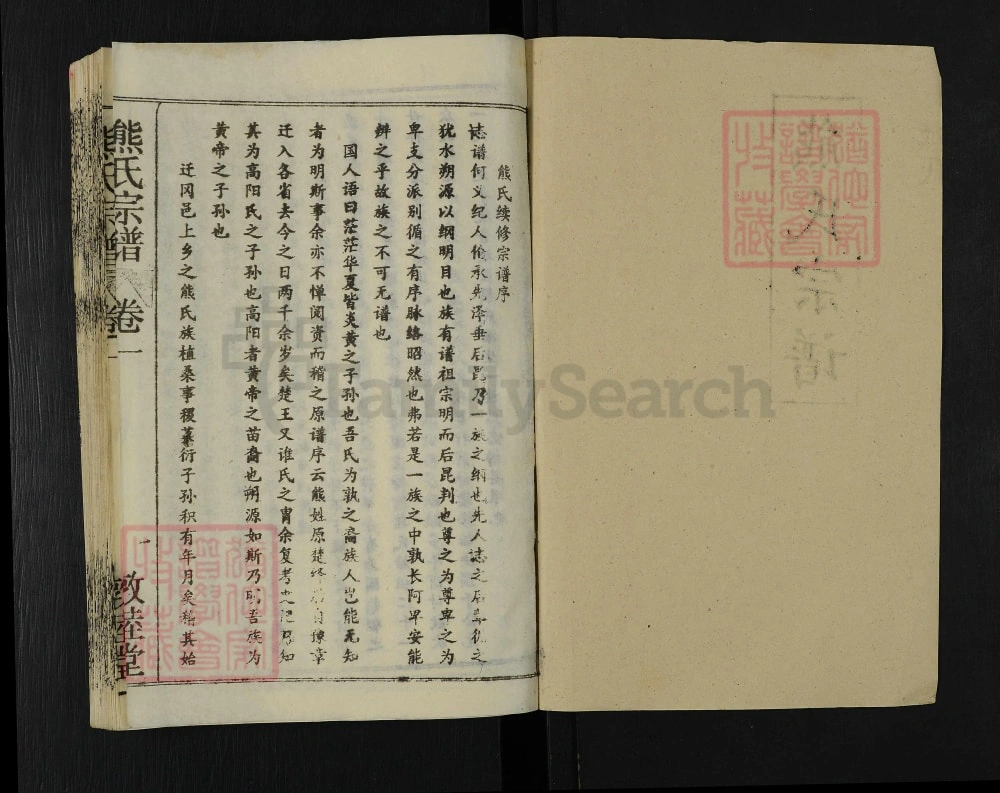 熊氏续修宗谱序
志谱何义纪人伦承先泽垂后昆乃一族之纲也先人志之后辈仿之
犹水朔源以纲明目也族有谱祖宗明而后昆判也尊之为尊卑之为
卑支分派别循之有序脉络昭然也弗若是一族之中孰长阿卑安能
辨之乎故族之不可无谱也
国人语曰茫茫华夏皆炎黄之子孙也吾氏为孰之裔族人岂能无知
者为明斯事余亦不惮阅资而稽之原谱序云熊姓原楚 自豫章
迁入各省去今之日两千余岁矣楚王又谁氏之胄余复考史记乃知
其为高阳氏之子孙也高阳者黄帝之苗裔也朔源如斯乃 吾族为
黄帝之子孙也
迁冈邑上乡之熊氏族植桑事稷蕃衍子孙积有年月矣稽其始
熊氏宗谱
卷一
一
敦睦堂
宗谱
FamilySearch